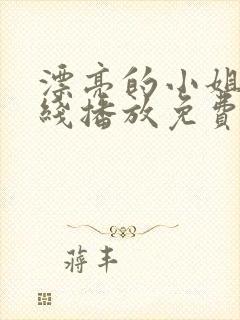 漂亮的小姐
线播放免費
蔣丰